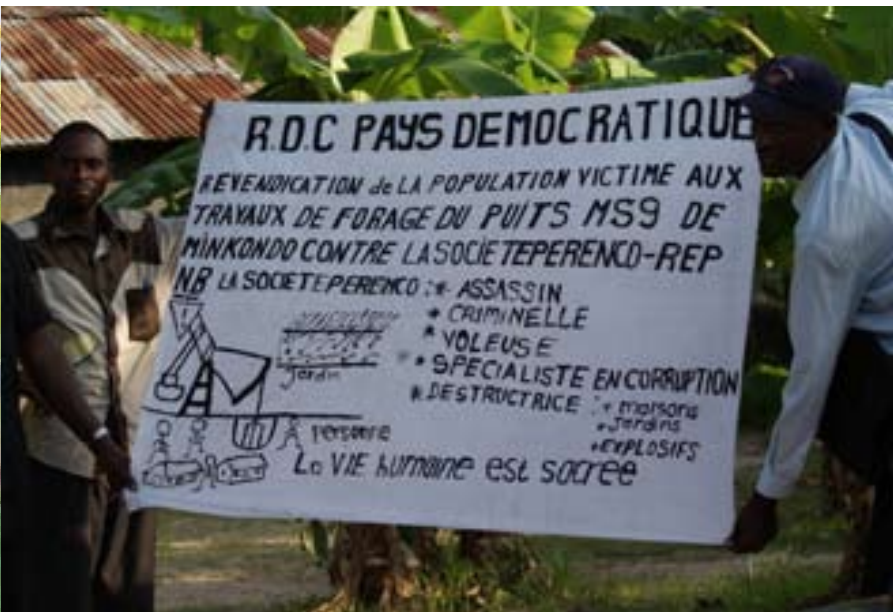 R.D.C PAYS DEMOCRATIQUE
REVENDICATION de LA POPULATION VICTIME AUX
TRAVAUX DE FORAGE DU PUITS MS9 DE
MINKONDO CONTRE LA SOCIETE PERENCO-REP
NB LA SOCIETE PERENCO : * ASSASSIN
* CRIMINELLE
* VOLEUSE
* SPECIALISTE EN CORRUPTION
* DESTRUCTRICE : + maisons
+ Jardins
+ EXPLOSIFS
Jardin
personne
La VIE humaine est sacrée